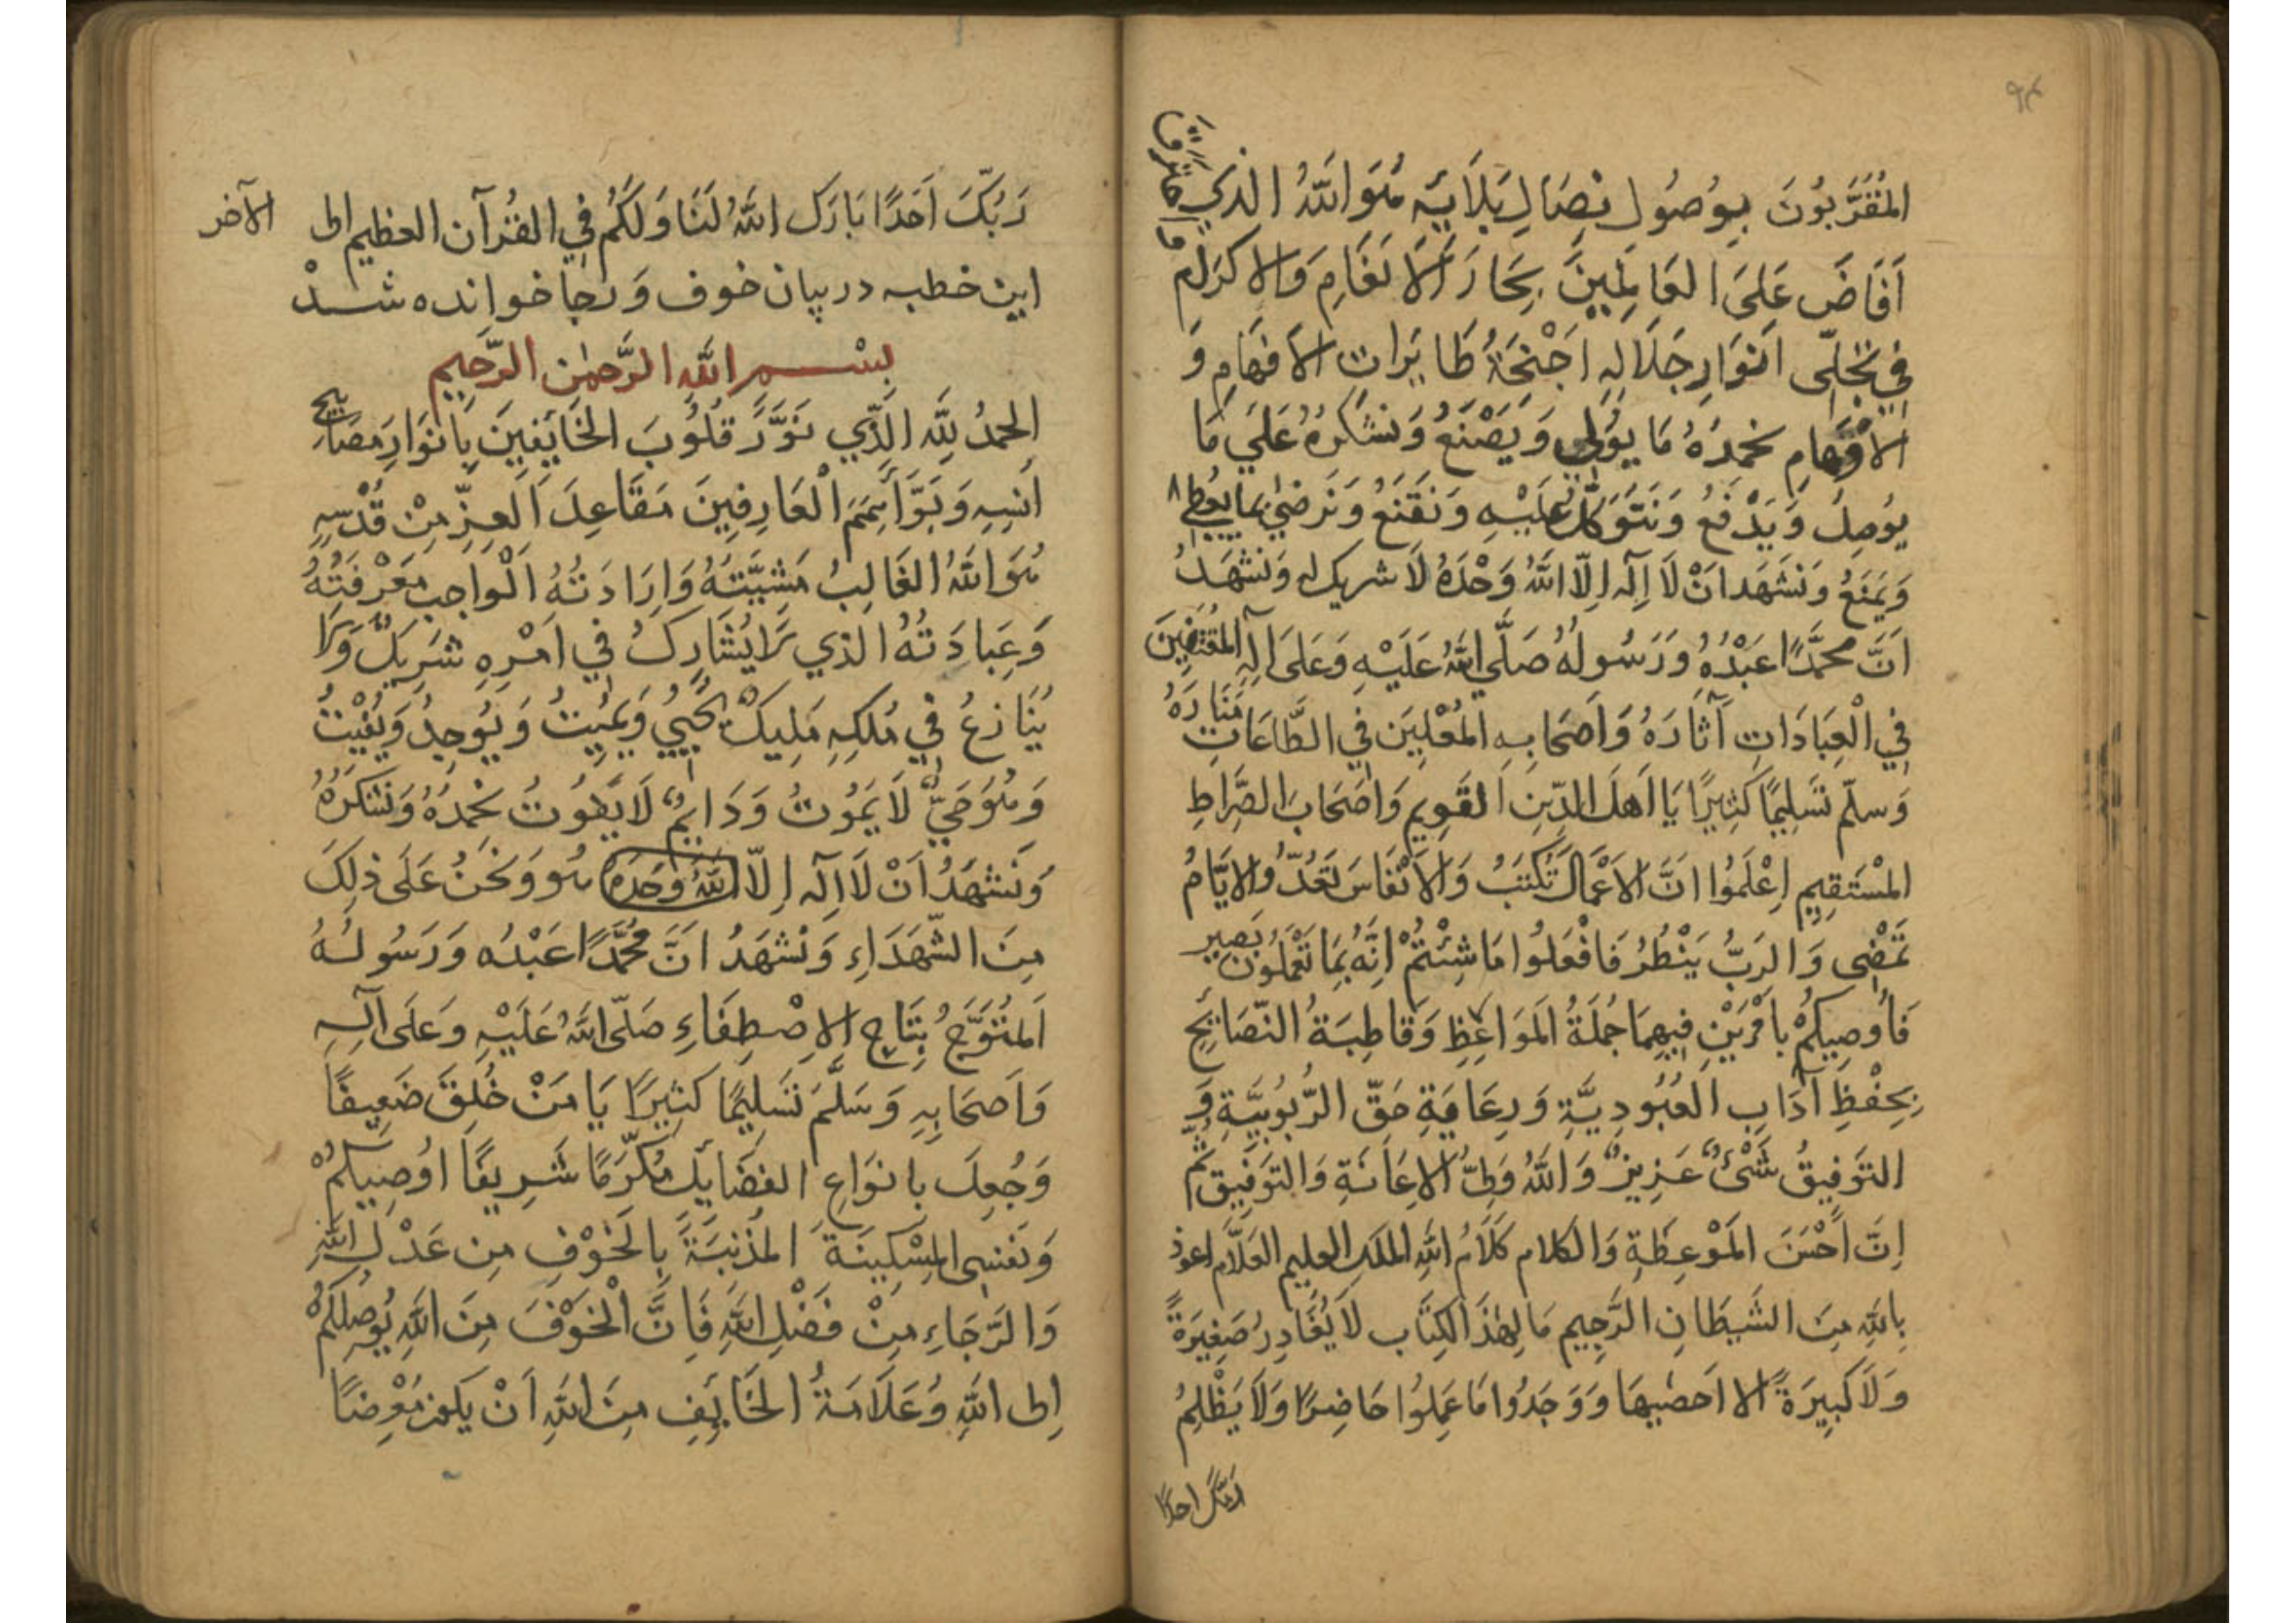 ٩٤
المُقَرَّبُونَ بِوُصُولِ نِصَالِ بَلَائِهِ هُوَ اللّٰهُ الذي
اَفَاضَ عَلَى العَالَمِينَ بِحَارَ الاَنعَامِ وَالاكرَامِ
فِي تَجَلِّي اَنوَارِ جَلَالِهِ اَجْنِحَةُ طَايِرَاتِ الاَفهَامِ وَ
الاَوْهَامِ نَحمَدُهُ مَا يُولِي وَيَصْنَعُ وَنَشكُرُهُ عَلَى مَا
يُوصِلُ وَيَدْفَعُ وَنَتَوَكَّلُ عَلَيْهِ وَنَقنَعُ وَنَرضىٰ بِمَا يُعطِي
وَيَمنَعُ وَنَشهَد اَنْ لَا اِلٰه اِلّا اللّٰهُ وَحْدَهُ لَا شريك له وَنَشْهَدُ
اَنَّ مُحَمَّدًا عَبْدُهُ وَرَسُولُهُ صَلَّى اللّٰهُ عَلَيْهِ وَعَلَى آلِهِ المُقتَفِينَ
فِي الْعِبَادَاتِ آثَارَهُ وَاَصحَابِهِ المُعْلِينَ فِي الطَّاعَاتِ مَنَارَهُ
وَسلّم تَسلِيمًا كَثِيرًا يَا اَهلَ الدِّينِ القَوِيمِ وَاَصحَابَ الصِّرَاطِ
المُسْتَقِيمِ اِعْلَمُوا اَنَّ الاَعْمَالَ تُكتَبُ وَالاَنْفَاسَ تُعَدُّ وَالاَيَّامُ
تَمضِى وَالرَبُّ يَنْظُرُ فَافْعَلُوا مَا شِئْتُمْ اِنَّهُ بِمَا تَعْمَلُونَ بَصِير
فَاُوصِيكُمْ بِاَمْرَيْنِ فِيهِمَا جُملَةُ المَوَاعِظِ وَقَاطِبَةُ النّصَائِحِ
بِحِفْظِ آدَابِ العُبُودِيَّةِ وَرِعَايَةِ حَقّ الرُّبُوبِيَّةِ وَ
التَوفِيقُ شَىْءٌ عَزِيزٌ وَاللّٰهُ وَلِىُّ الاِعَانَةِ وَالتَوفِيق ثُم
اِنَّ اَحْسَنَ المَوْعِظَةِ وَالكلام كَلَامُ اللّٰهِ المَلك العليم العَلَّام اعوذ
بِاللّٰهِ مِنَ الشَيطَانِ الرَّجِيم مَا لِهٰذَا الكِتَاب لَا يُغَادِرُ صَغِيرَةً
وَلَا كَبِيرَةً الا اَحصٰيهَا وَوَجَدُوا مَا عَمِلُوا حَاضِرًا وَلَا يَظْلِمُ
رَبُّكَ احدًا
رَبُّكَ اَحَدًا بَارَكَ اللّٰهُ لَنَا وَلَكُمْ فِي القُرْآن العظيم الى الآخر
اين خطبه در بيان خوف وَ رجا خوانده شدْ
بِسْمِ اللّٰهِ الرَّحمٰنِ الرَّحِيمِ
الحَمدُ لِلّٰهِ الَّذِي نَوَّرَ قُلُوبَ الخَائِفِينَ بِاَنوَارِ مَصَابِيحِ
اُنسِهِ وَبَوَّأَ هِمَمَ الْعَارِفِينَ مَقَاعِدَ العِزِّ مِنْ قُدْسِهِ
هُوَ اللّٰهُ الغَالِبُ مَشِيَّتُهُ وَاِرَادَتُهُ الْوَاجِب مَعْرِفَتُهُ
وَعِبادَتُهُ الذي لَا يُشَارِكُ فِي اَمْرِهِ شَرِيكٌ وَلَا
يُنَازِعُ فِي مُلكِهِ مَلِيكٌ يُحيِي وَيُمِيتُ وَيُوجِدُ وَيُفِيْتُ
وَهُوَ حَيٌّ لَا يَمُوتُ وَدَايِمٌ لَا يَفُوتُ نَحْمَدُهُ وَنَشكُرُهُ
وَنَشهَدُ اَنْ لَا اِلٰه اِلّا اللّٰهُ وَحدَهُ هُو وَنَحْنُ عَلَى ذٰلِكَ
مِنَ الشُّهَدَاءِ وَنَشهَدُ اَنَّ مُحَمَّدًا عَبْدُه وَرَسُولُهُ
اَلمُتَوَّجُ بِتَاجِ الاِصْطِفَاءِ صَلّى اللّٰهُ عَلَيْهِ وَعَلَى آلِهِ
وَاَصحَابِهِ وَسَلَّمَ تَسلِيمًا كَثِيرًا يَا مَنْ خُلِقَ ضَعِيفًا
وَجُعِلَ بِانوَاعِ الفضَايِلِ مُكَرَّمًا شَرِيفًا اوُصِيكُمْ
وَنَفسِى المِسْكِينَةَ المُذنِبَةَ بِالخَوْفِ مِن عَدْلِ اللّٰهِ
وَالرَّجَاءِ مِنْ فَضْلِ اللّٰهِ فَاِنَّ الْخَوْفَ مِنَ اللّٰهِ يُوصِلُكُمْ
اِلى اللّٰهِ وَعَلَامَةُ الخَايِفِ مِنَ اللّٰهِ اَنْ يَكُون مُعْرِضًا